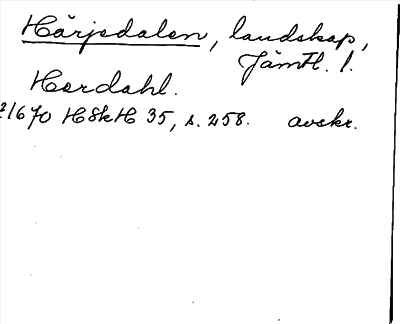 Härjedalen, landskap,
Jämtl. l.
Herdahl.
21670 HSkH 35, s. 258. avskr.